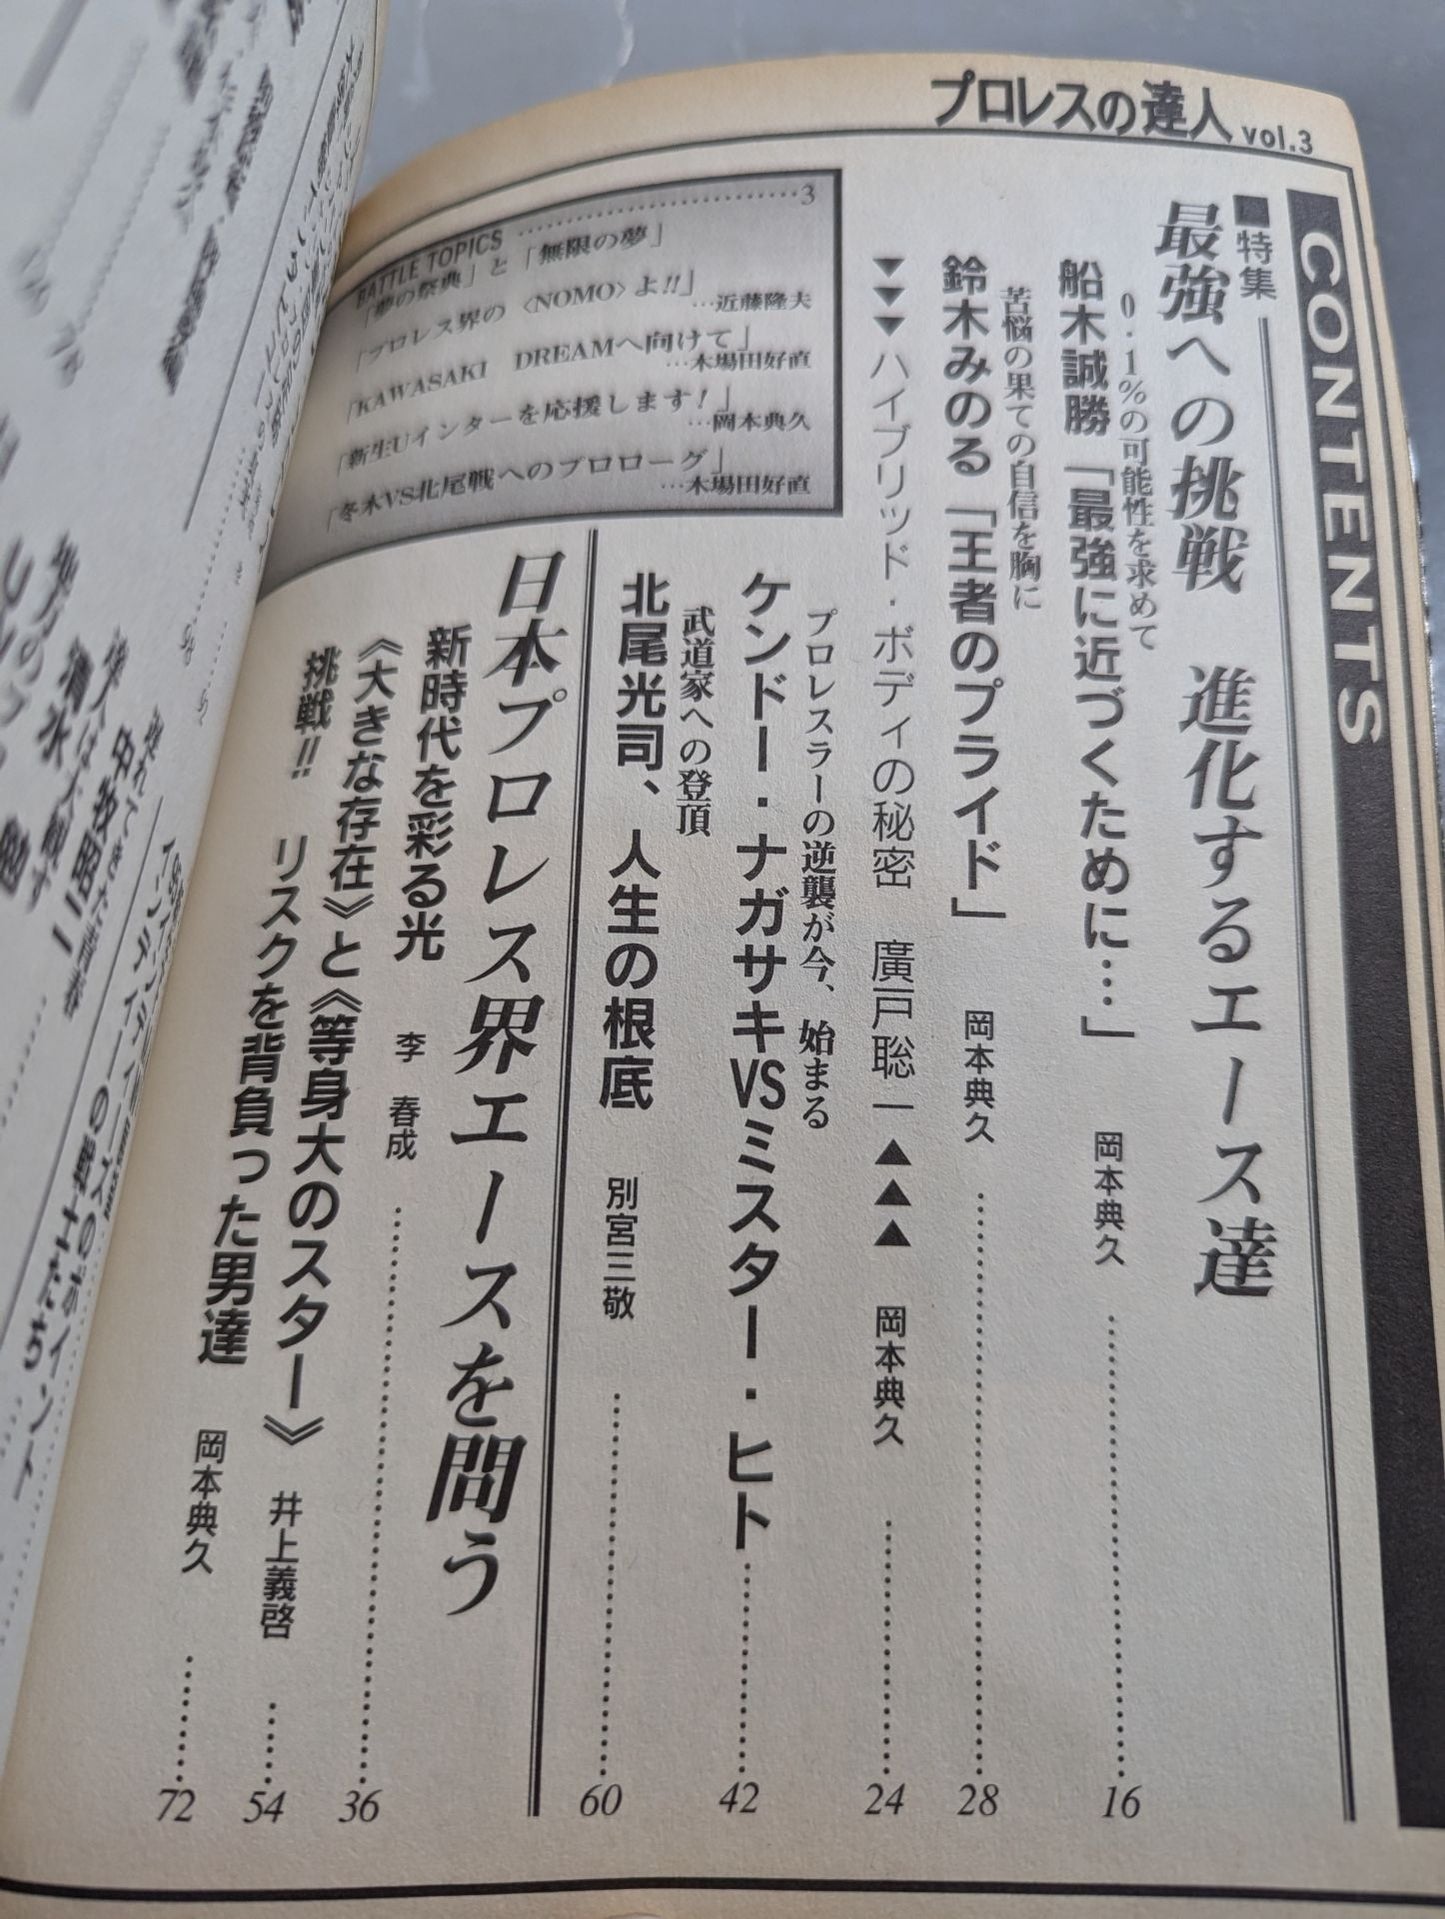 プロレスの達人 vol.3
CONTENTS
■特集
最強への挑戦 進化するエース達
0.1%の可能性を求めて
船木誠勝「最強に近づくために…」 岡本典久 16
苦悩の果ての自信を胸に
鈴木みのる「王者のプライド」 岡本典久 28
▼▼▼ハイブリッド・ボディの秘密 廣戸聡一▲▲▲ 岡本典久 24
プロレスラーの逆襲が今、始まる
ケンドー・ナガサキVSミスター・ヒト 42
武道家への登頂
北尾光司、人生の根底 別宮三敬 60
BATTLE TOPICS 3
「夢の祭典」と「無限の夢」
「プロレス界の〈NOMO〉よ!!」
…近藤隆夫
「KAWASAKI DREAMへ向けて」
…木場田好直
「新生Uインターを応援します!」
…岡本典久
「冬木VS北尾戦へのプロローグ」
…木場田好直
日本プロレス界エースを問う
新時代を彩る光 李 春成 36
《大きな存在》と《等身大のスター》 井上義啓 54
挑戦!! リスクを背負った男達 岡本典久 72